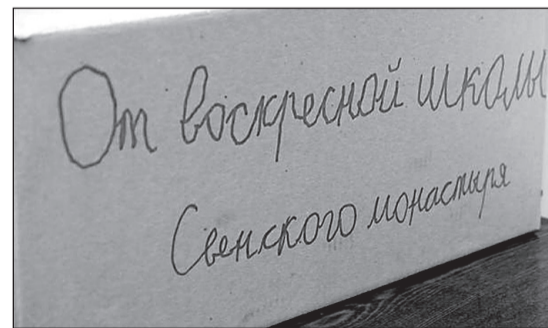 От воскресной школы
Свенского монастыря